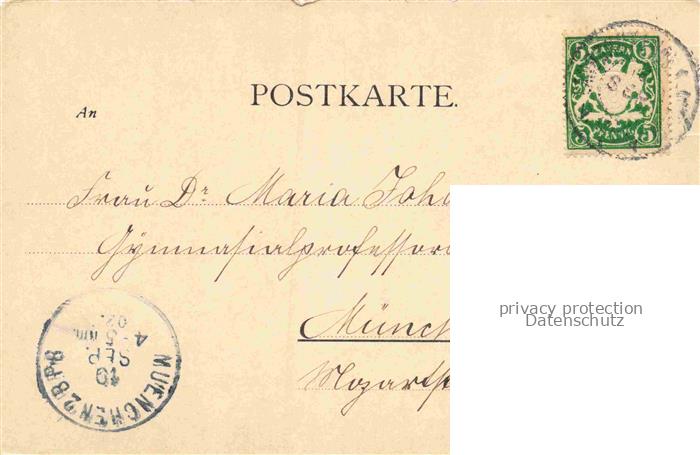 POSTKARTE.
BAYERN
5 5
5 5
PFENNIG
An
Frau Dr Maria Joh
Gymnasialprofessors
Münc
Mozartst
MUENCHEN 2 B.P. 8
19
SEP.
4-5 NM.
02.
privacy protection
Datenschutz